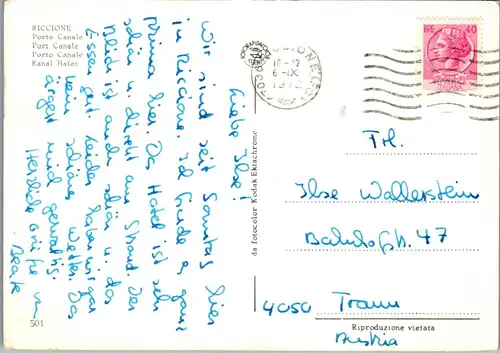 RICCIONE
Porto Canale
Port Canale
Porto Canale
Kanal Hafen
Liebe Ilse!
Wir sind seit Samstag hier
in Riccione. Ich finde es ganz
prima hier. Das Hotel ist sehr
schön u. direkt am Strand. Der
Blick ist auch schön u. das
Essen gut. Leider haben wir gar
kein schönes Wetter. Das
ärgert mich gewaltig.
Herzliche Grüße von
Beate
501
da fotocolor Kodak Ektachrome
16-17
6-IX
IRE 40
ITALIANA
Frl.
Ilse Wallerstein
Bahnhofstr. 47
4050 Traun
Austria
Riproduzione vietata